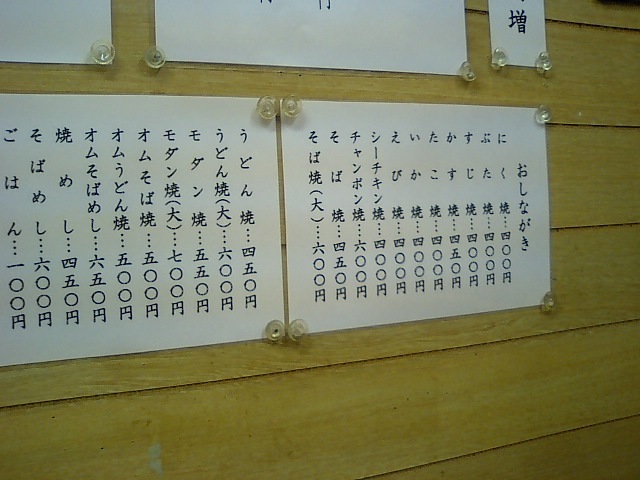 増
おしながき
にく焼…四〇〇円
ぶた焼…四〇〇円
すじ焼…四〇〇円
かす焼…四五〇円
たこ焼…四〇〇円
いか焼…四〇〇円
えび焼…四〇〇円
シーチキン焼…四〇〇円
チャンポン焼…六〇〇円
そば焼…四五〇円
そば焼(大)…六〇〇円
うどん焼…四五〇円
うどん焼(大)…六〇〇円
モダン焼…五五〇円
モダン焼(大)…七〇〇円
オムそば焼…五〇〇円
オムうどん焼…五〇〇円
オムそばめし…六五〇円
焼めし…四五〇円
そばめし…六〇〇円
ごはん…一〇〇円